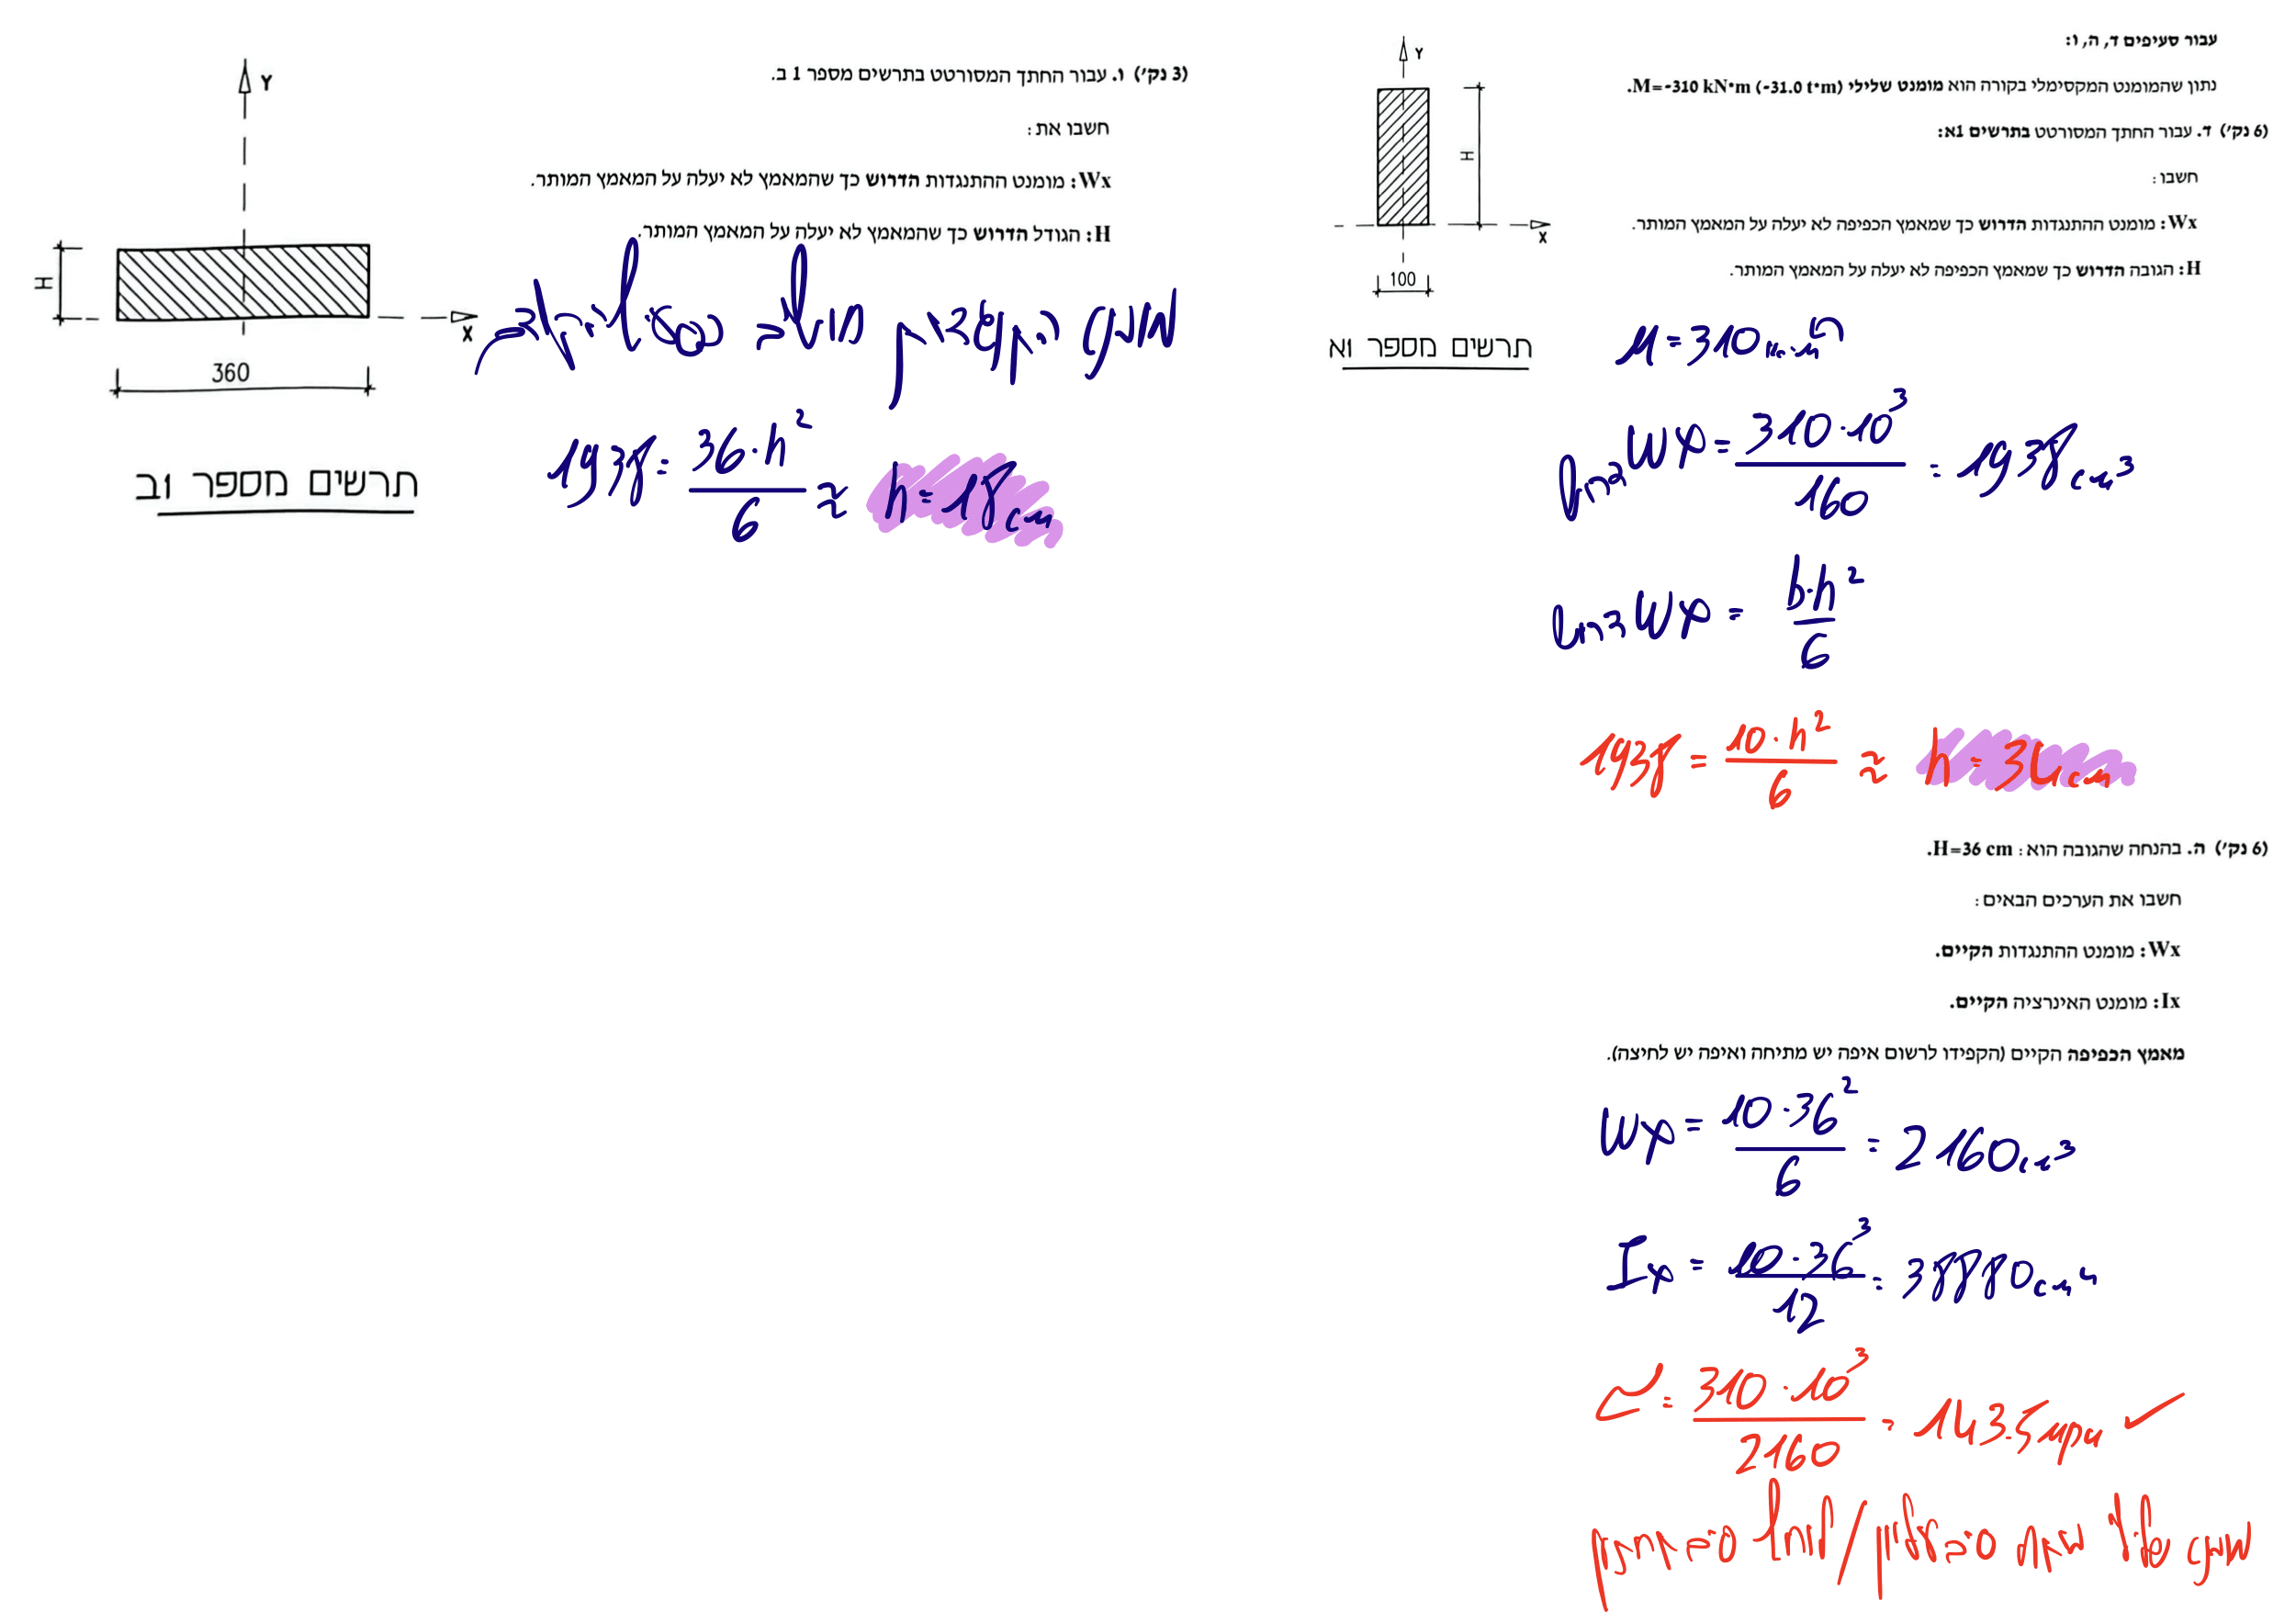 עבור סעיפים ד, ה, ו:
נתון שהמומנט המקסימלי בקורה הוא מומנט שלילי M=-310 kN•m (-31.0 t•m).
(6 נק') ד. עבור החתך המסורטט בתרשים 1א:
חשבו:
Wx: מומנט ההתנגדות הדרוש כך שמאמץ הכפיפה לא יעלה על המאמץ המותר.
H: הגובה הדרוש כך שמאמץ הכפיפה לא יעלה על המאמץ המותר.
Y
H
X
100
תרשים מספר 1א
M = 310
Wx = 310·10³ / 160 = 1938 cm³
Wx = b·h² / 6
1938 = 10·h² / 6 ≈ h = 34 cm
(6 נק') ה. בהנחה שהגובה הוא: H=36 cm.
חשבו את הערכים הבאים:
Wx: מומנט ההתנגדות הקיים.
Ix: מומנט האינרציה הקיים.
מאמץ הכפיפה הקיים (הקפידו לרשום איפה יש מתיחה ואיפה יש לחיצה).
Wx = 10·36² / 6 = 2160 cm³
Ix = 10·36³ / 12 = 38880 cm⁴
310·10³ / 2160 = 143.5 mpa ✓
מומנט שלילי סיב עליון / סיב תחתון
(3 נק') ו. עבור החתך המסורטט בתרשים מספר 1 ב.
חשבו את:
Wx: מומנט ההתנגדות הדרוש כך שהמאמץ לא יעלה על המאמץ המותר.
H: הגודל הדרוש כך שהמאמץ לא יעלה על המאמץ המותר.
Y
H
X
360
תרשים מספר 1ב
מומנט התנגדות
1938 = 36·h² / 6 ≈ h = 18 cm